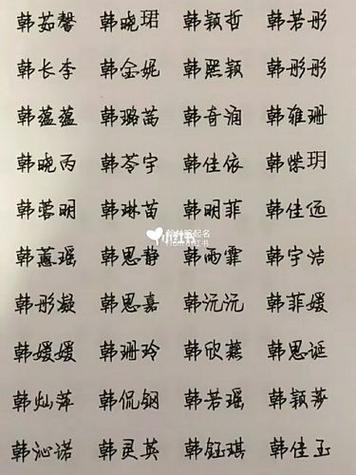 韩茹馨 韩晓珺 韩颖哲 韩若彤
韩长李 韩金妮 韩熙颖 韩彤彤
韩蕴蕴 韩璐苗 韩奇润 韩雅珊
韩晓丙 韩苓宇 韩佳依 韩紫玥
韩蓉明 韩琳苗 韩明菲 韩佳远
小红书
韩蕙瑶 韩思静 韩雨霏 韩宇洁
韩彤凝 韩思嘉 韩沅沅 韩菲媛
韩媛媛 韩珊玲 韩欣慕 韩思诞
韩灿萍 韩侃钢 韩若瑶 韩颖莎
韩沁诺 韩灵英 韩钰琪 韩佳玉